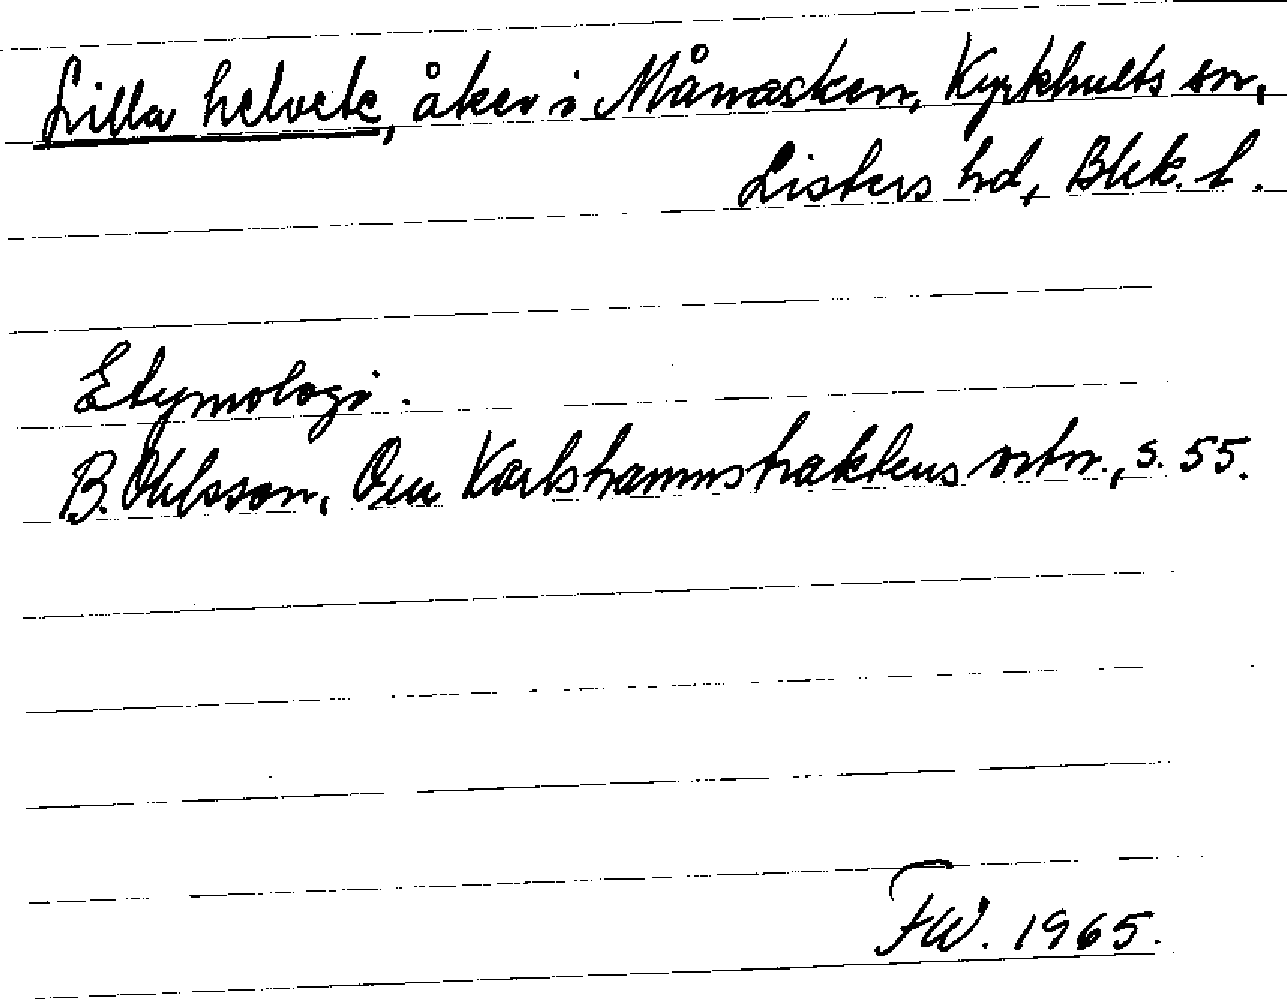 Lilla helvete, åker i Månasken, Kyrkhults sn,
Listers hd, Blek. l.
Etymologi.
B. Ohlsson, Om Karlshamnstraktens ortn., s. 55.
FW. 1965.